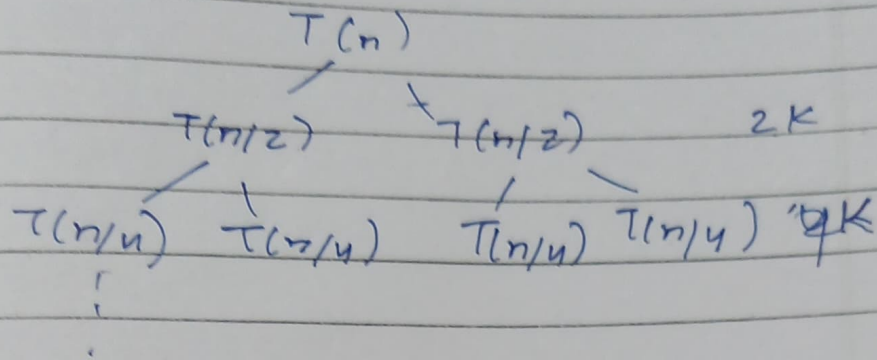 T(n)
T(n/2) T(n/2) 2K
T(n/4) T(n/4) T(n/4) T(n/4) 4K